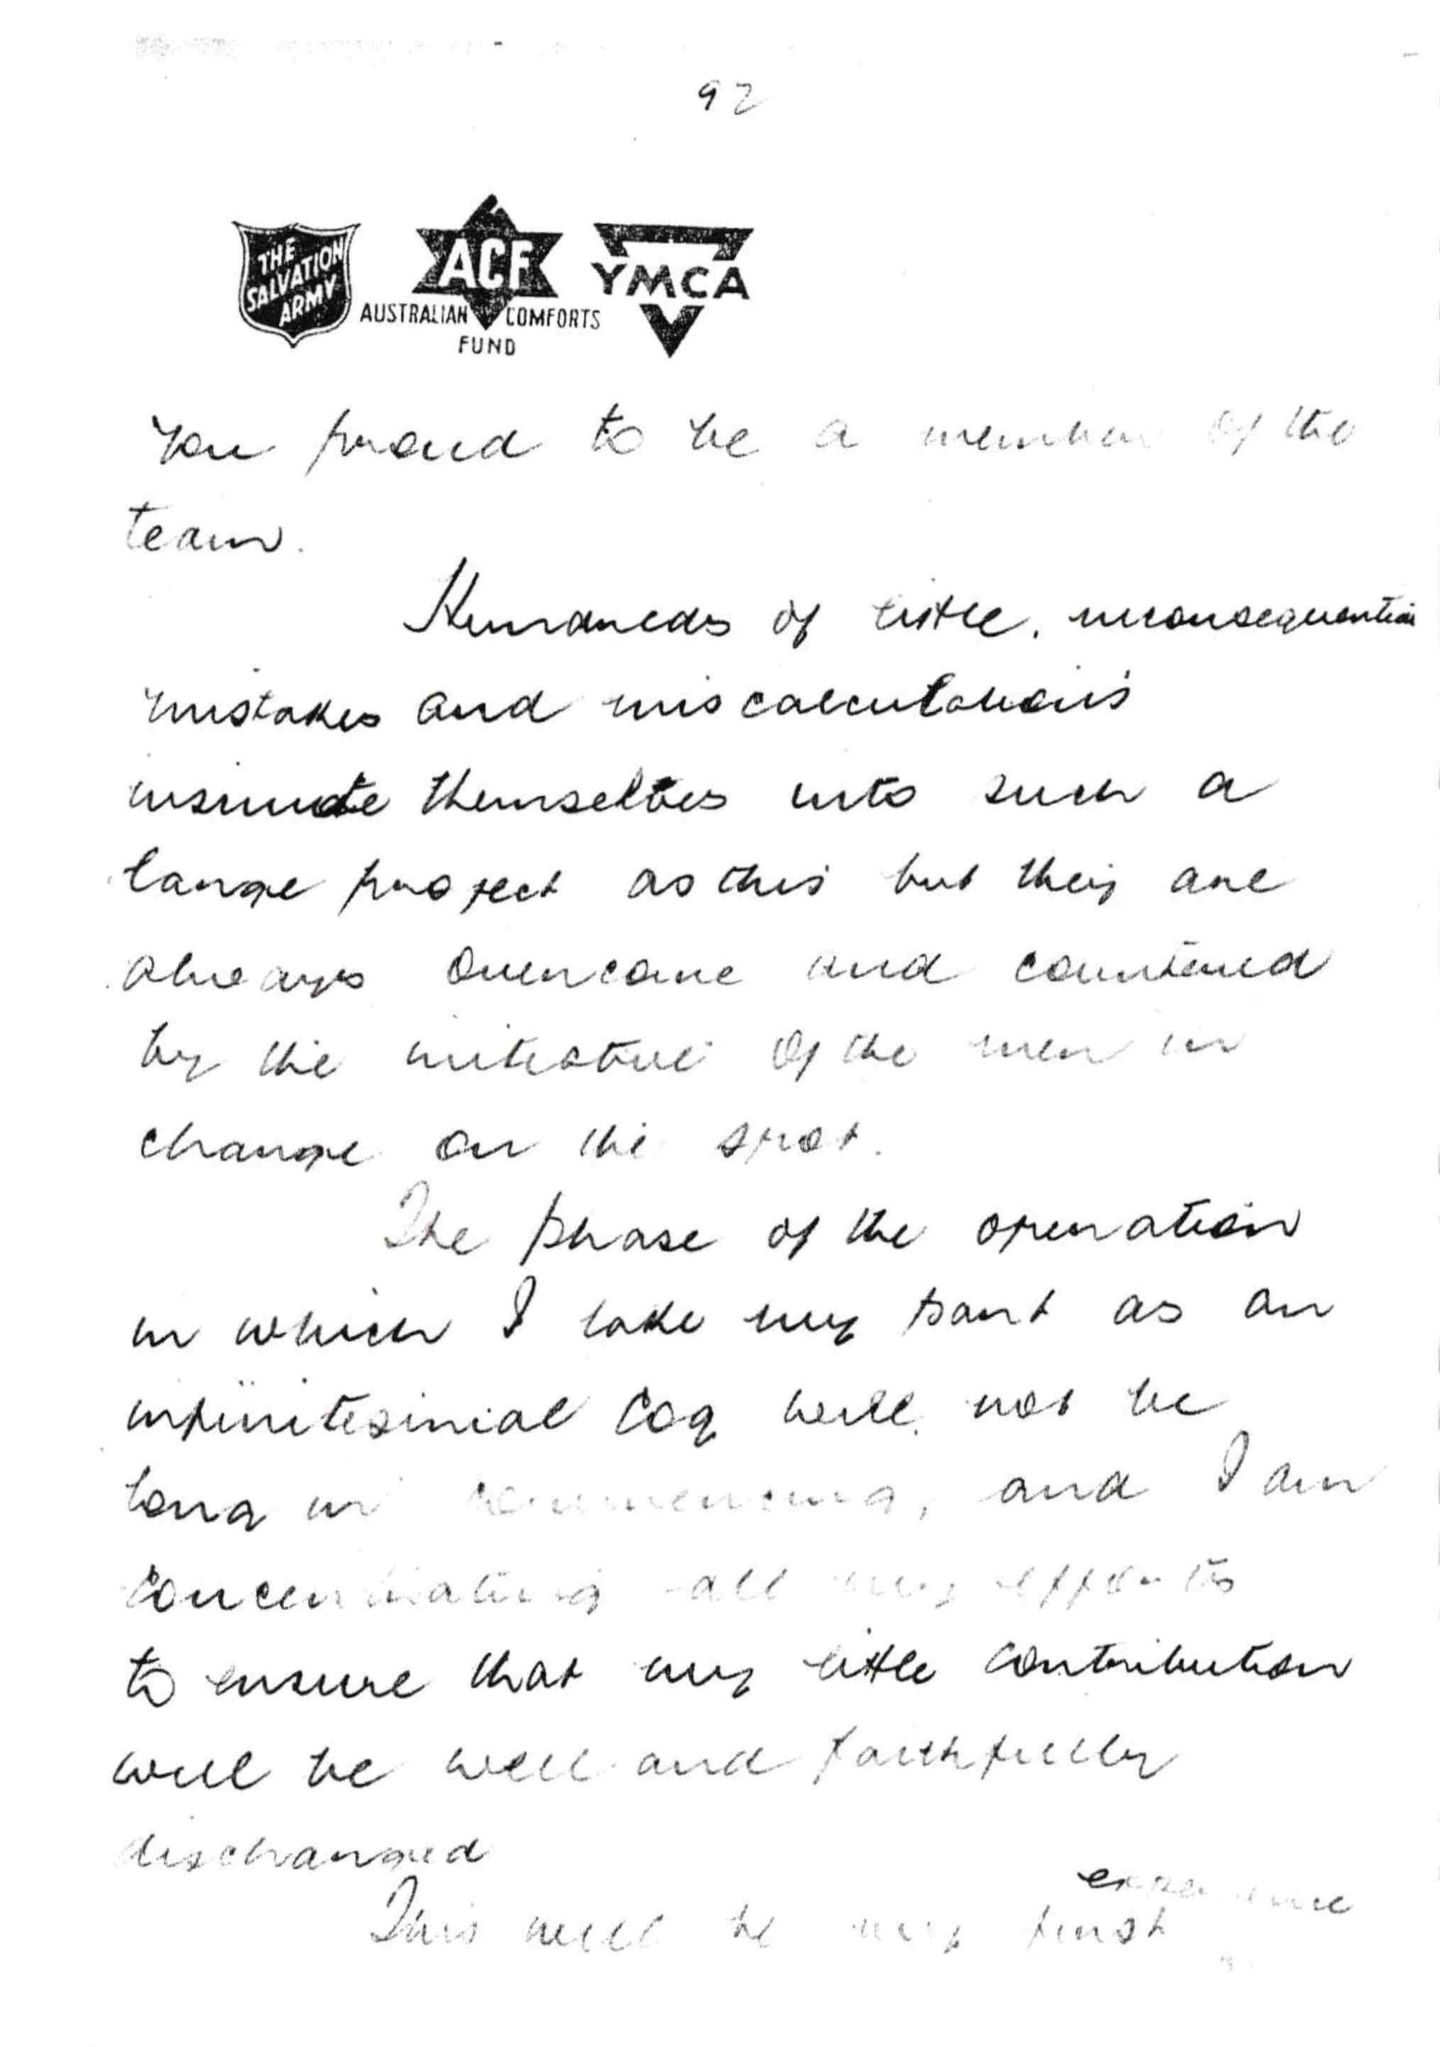 92
THE SALVATION ARMY
ACF
AUSTRALIAN COMFORTS FUND
YMCA
you proud to be a member of the
team.
Hundreds of little, inconsequential
mistakes and miscalculations
insinuate themselves into such a
large project as this but they are
always overcome and countered
by the initiative of the men in
charge on the spot.
The phase of the operation
in which I take my part as an
infinitesimal cog will not be
long in commencing, and I am
concentrating all my efforts
to ensure that my little contribution
will be well and faithfully
discharged
This will be my first experience